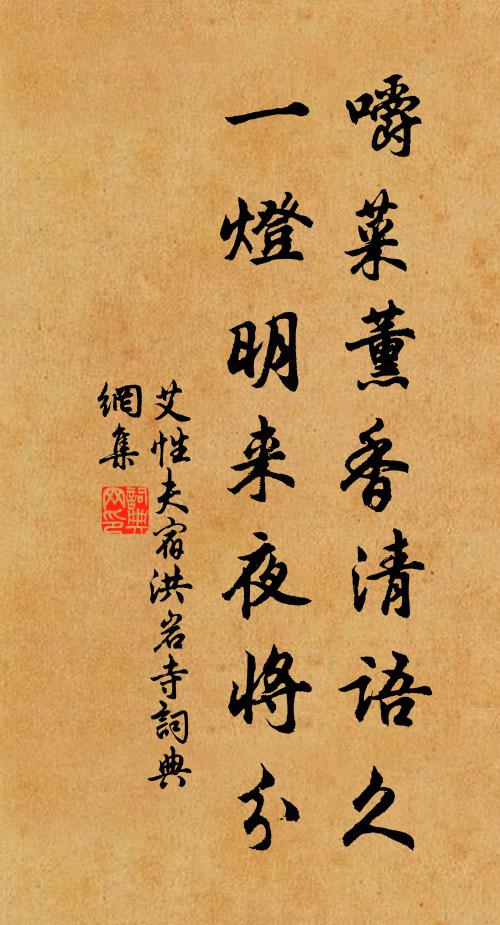 嚼菜薰香清語久
一燈明来夜將分
艾性夫宿洪岩寺詞典
網集
詞典网印